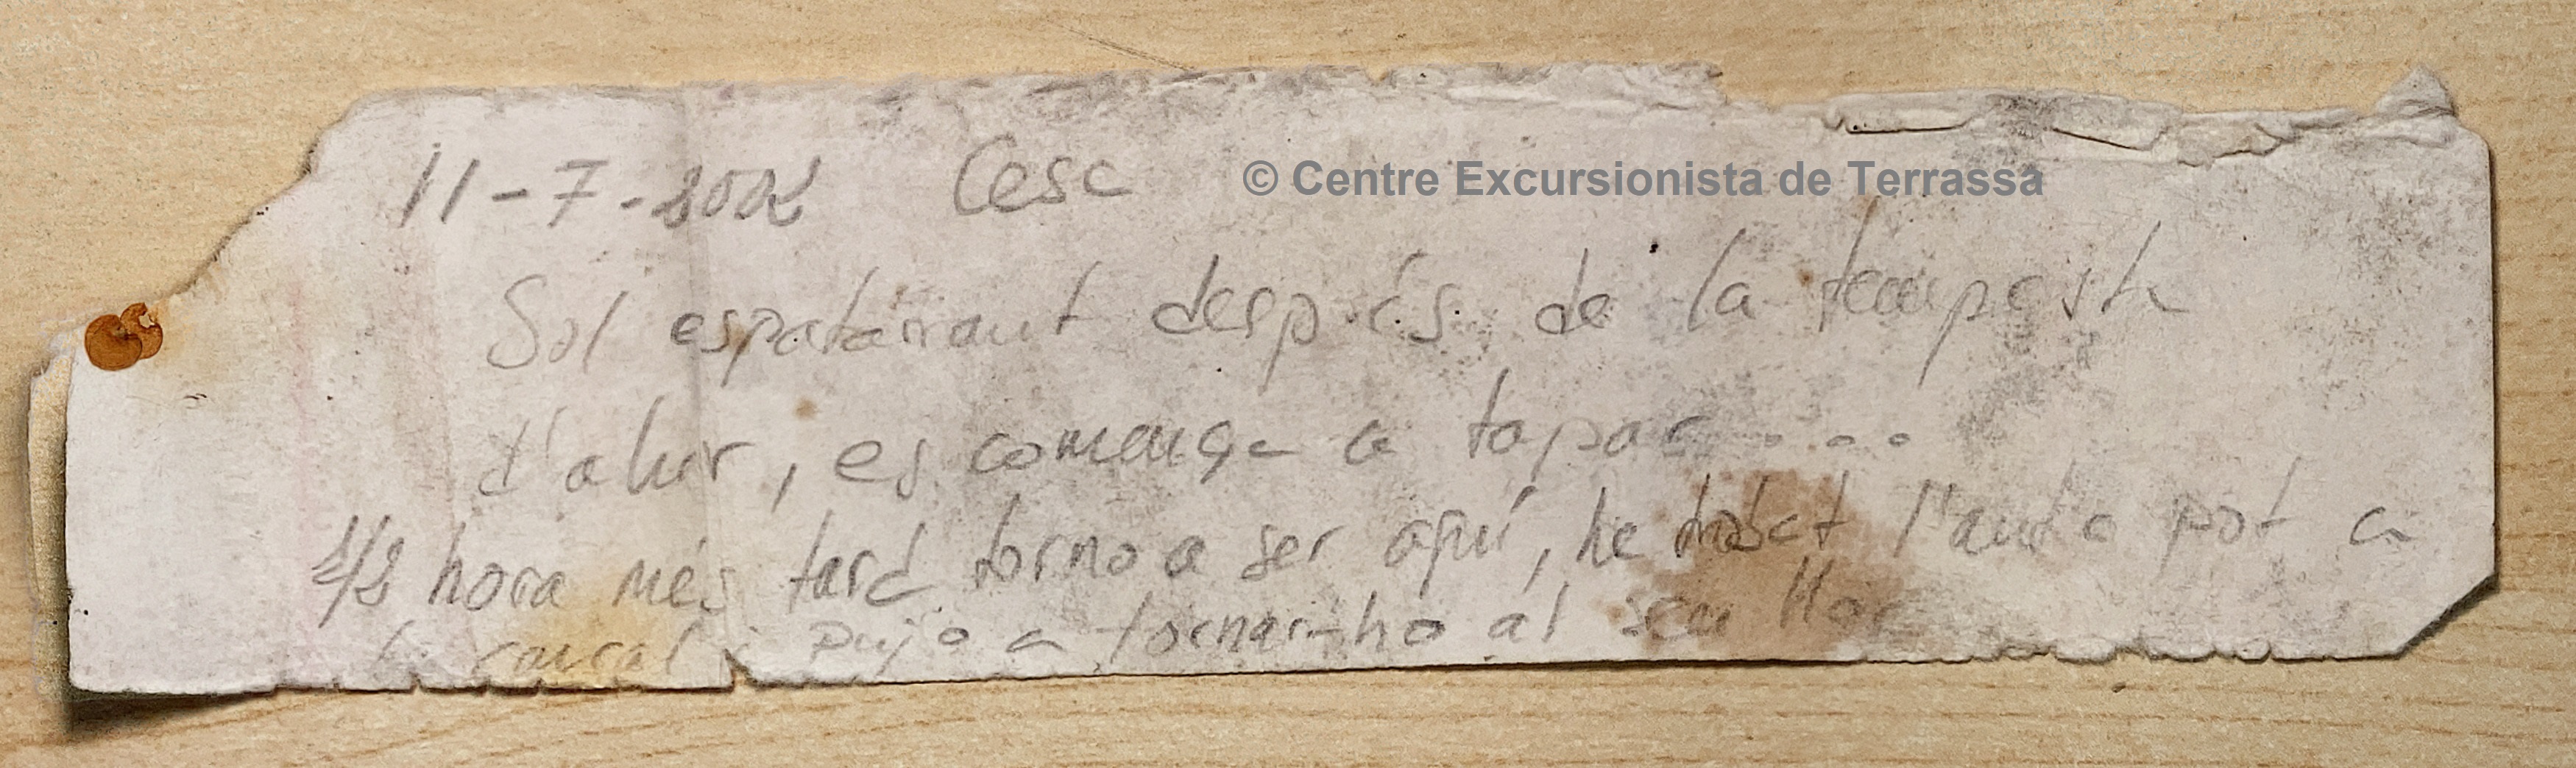 11-7-2002 Cesc
© Centre Excursionista de Terrassa
Sol espatarrant després de la tempesta
d'ahir, es comença a tapar....
1/2 hora més tard torno a ser aquí, he trobat l'antic pot a
la canal i pujo a tornar-ho al seu lloc